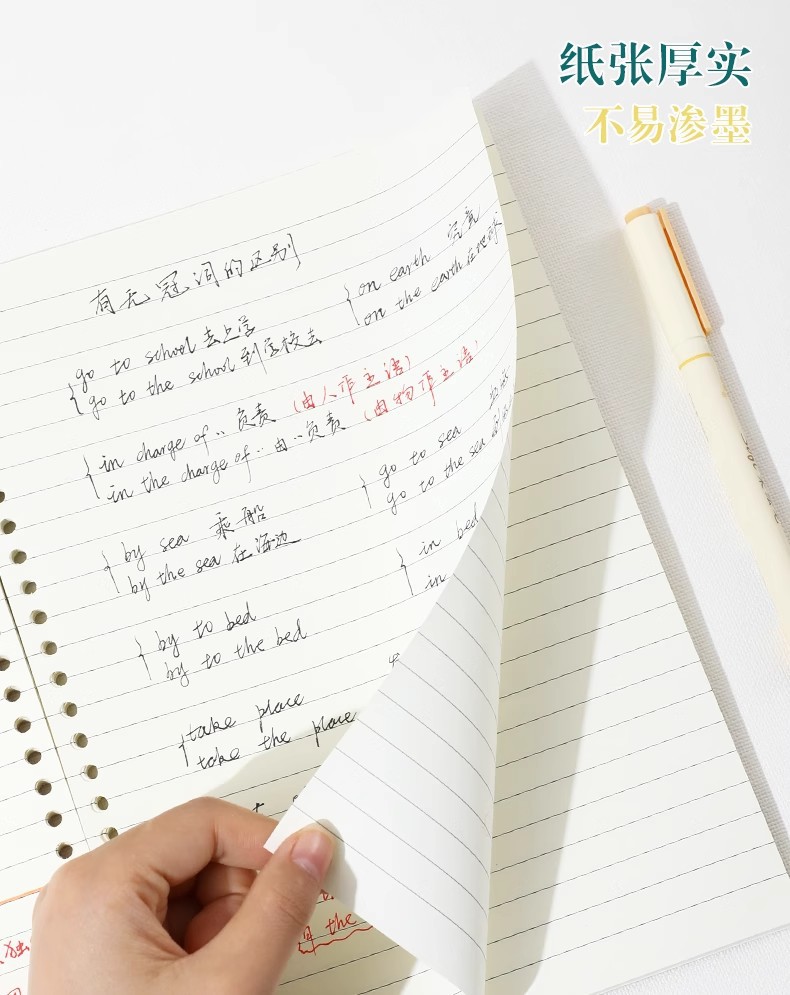 纸张厚实
不易渗墨
有无冠词的区别
go to school 去上学
go to the school 到学校去
on earth 究竟
on the earth 在地球
in charge of ‥ 负责 (由人作主语)
in the charge of ‥ 由‥负责 (由物作主语)
by sea 乘船
by the sea 在海边
go to sea
go to the sea
by to bed
by to the bed
in bed
in
take place
take the place
the